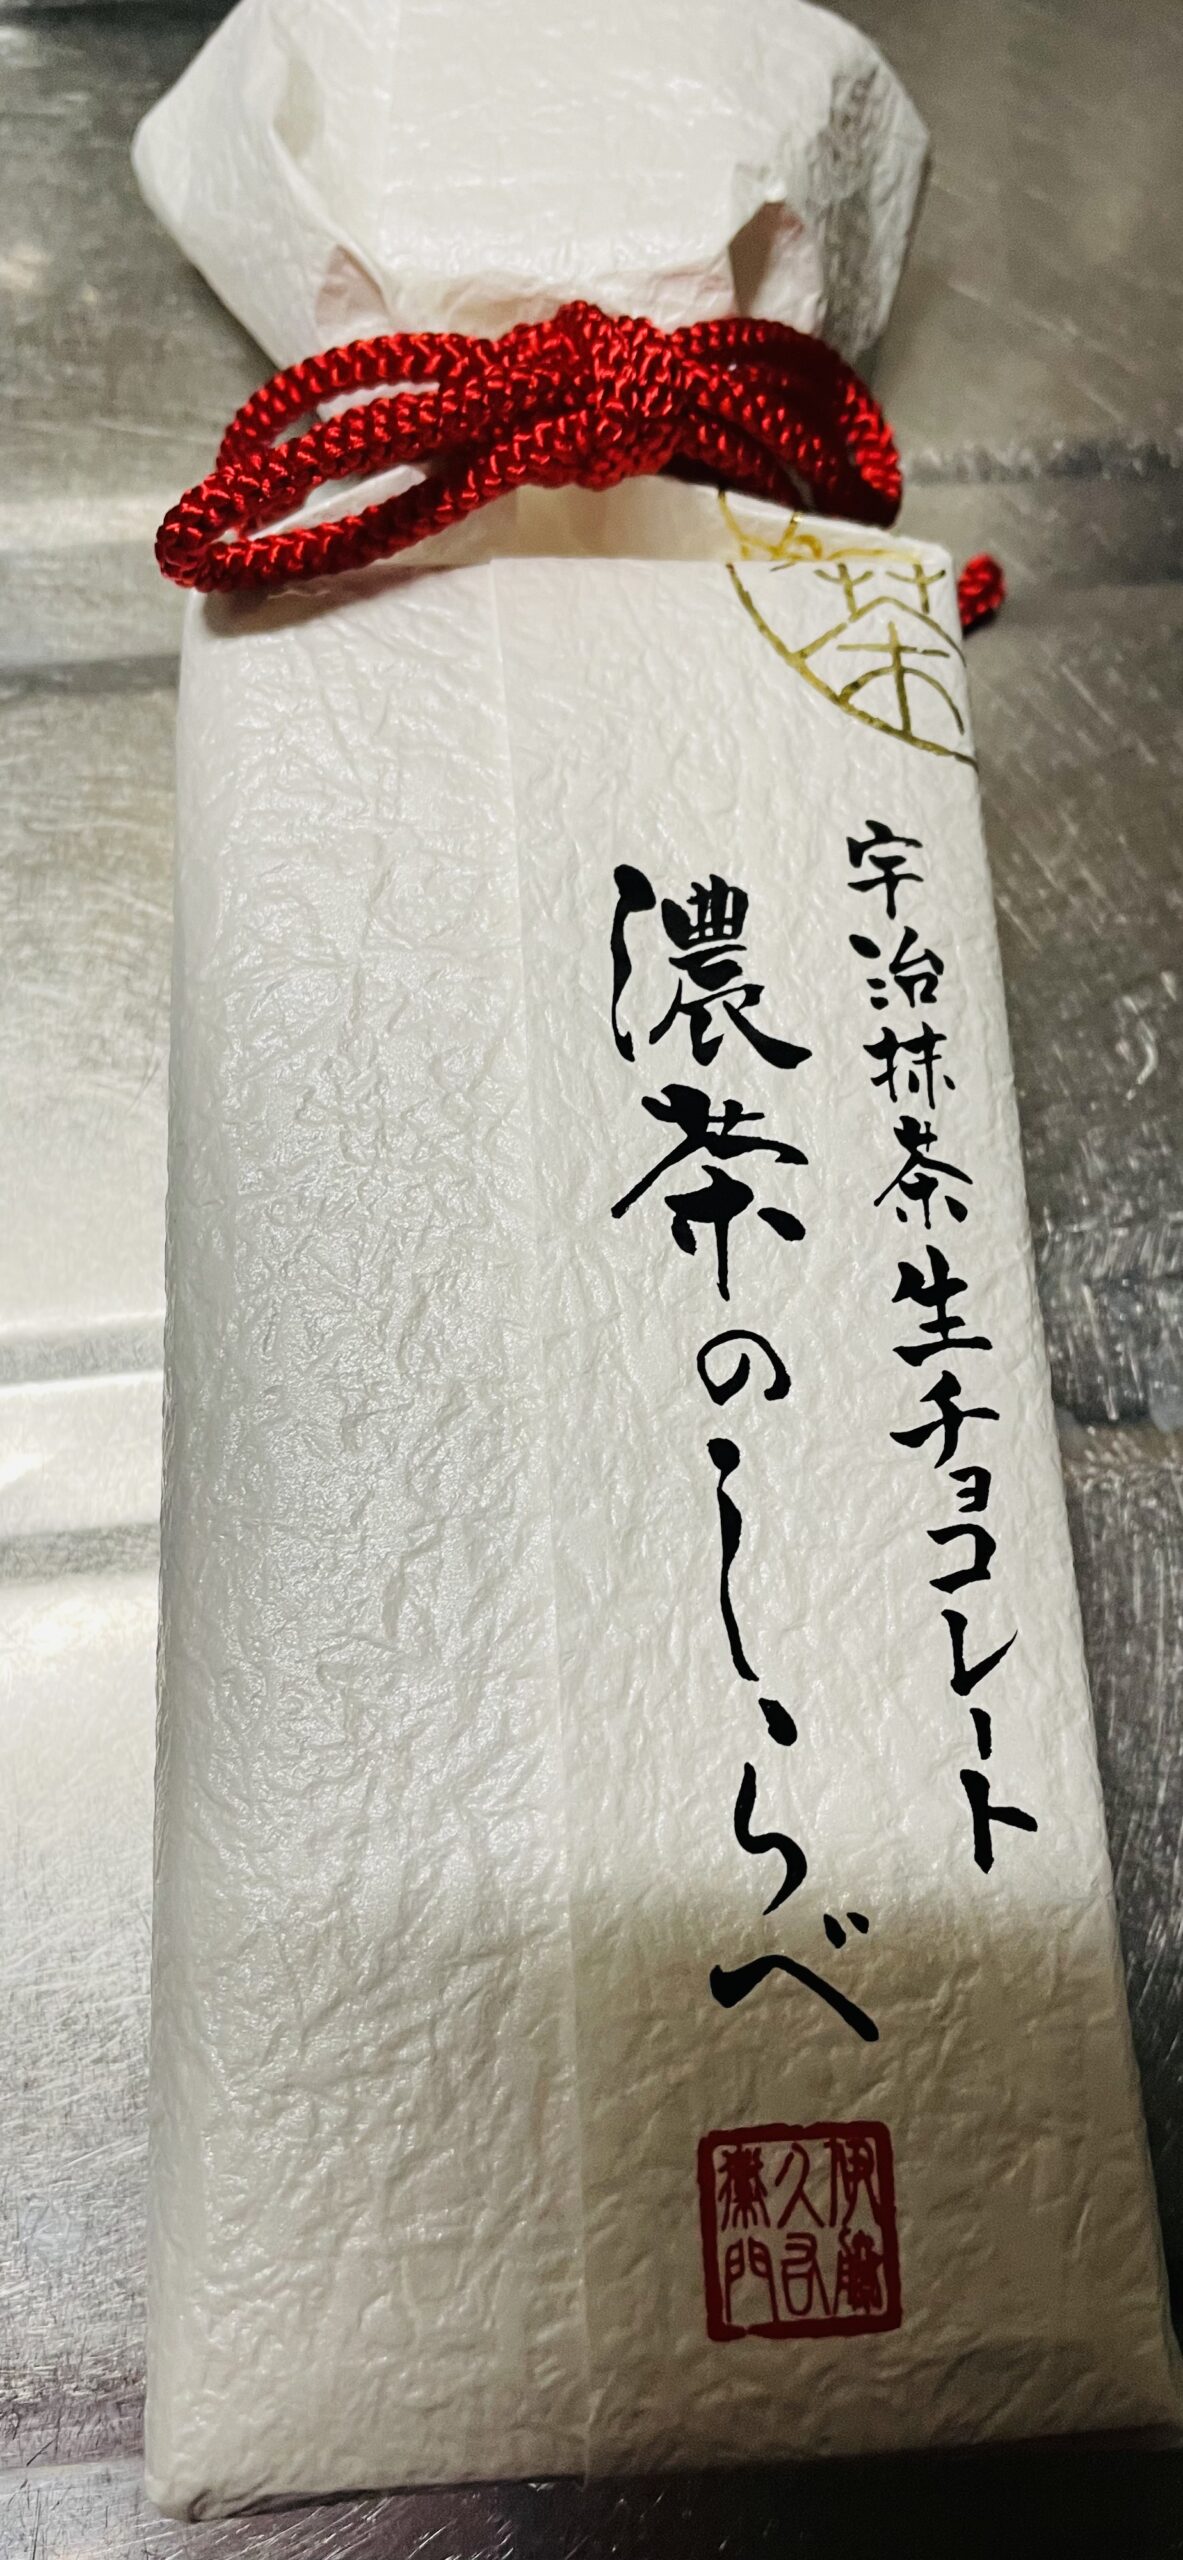 茶
宇治抹茶生チョコレート
濃茶のしらべ
伊藤
久右
衛門